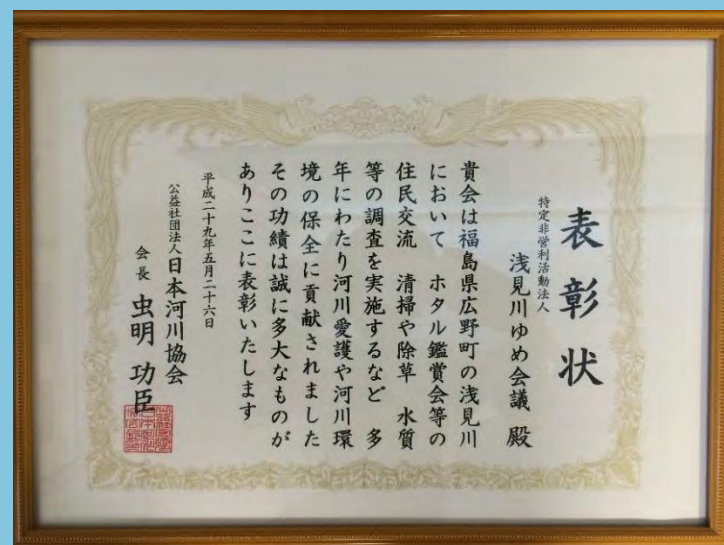 表彰状
特定非営利活動法人
浅見川ゆめ会議 殿
貴会は福島県広野町の浅見川
において ホタル鑑賞会等の
住民交流 清掃や除草 水質
等の調査を実施するなど 多
年にわたり河川愛護や河川環
境の保全に貢献されました
その功績は誠に多大なものが
ありここに表彰いたします
平成二十九年五月二十六日
公益社団法人日本河川協会
会長 虫明 功臣